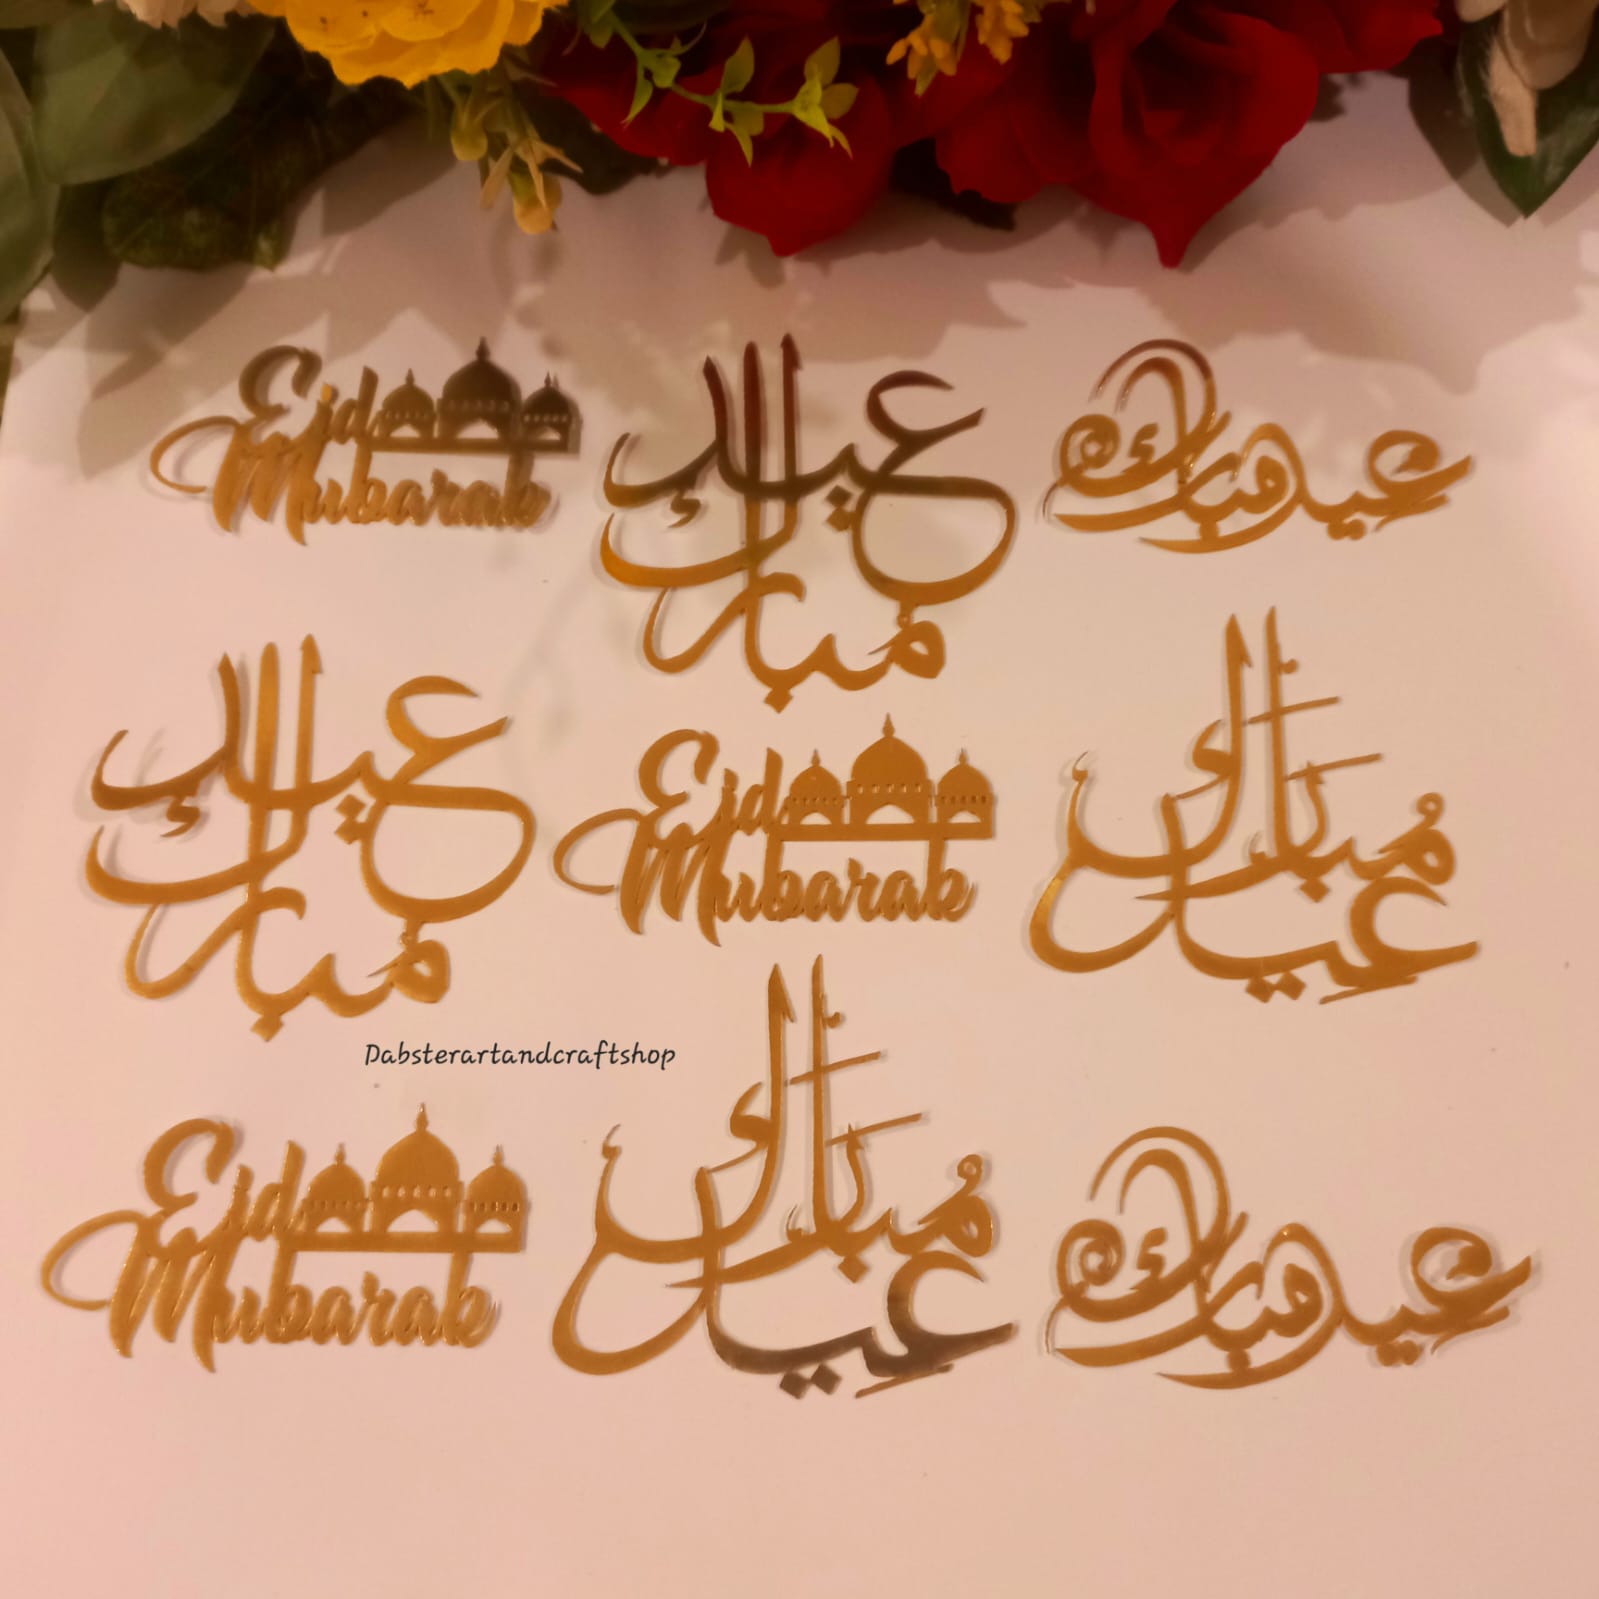 Eid
Mubarak
عيد
مبارك
عيد مبارك
عيد
مبارك
Eid
Mubarak
مُبَارَك
عيد
Dabsterartandcraftshop
Eid
Mubarak
مُبَارَك
عيد
عيد مبارك